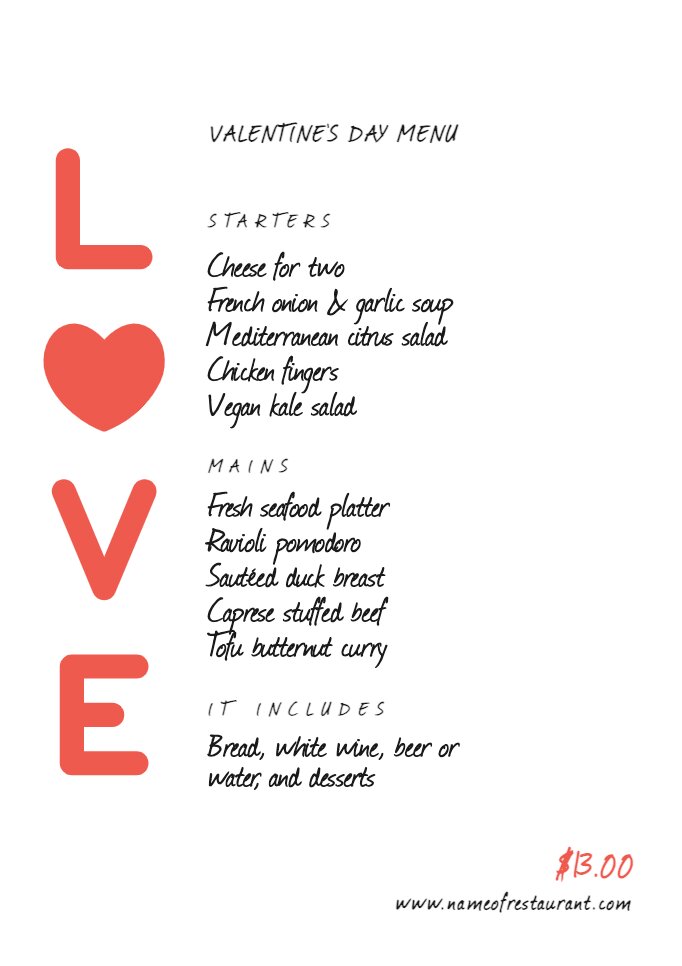 VALENTINE'S DAY MENU
L
V
E
STARTERS
Cheese for two
French onion & garlic soup
Mediterranean citrus salad
Chicken fingers
Vegan kale salad
MAINS
Fresh seafood platter
Ravioli pomodoro
Sautéed duck breast
Caprese stuffed beef
Tofu butternut curry
IT INCLUDES
Bread, white wine, beer or
water, and desserts
$13.00
www.nameofrestaurant.com